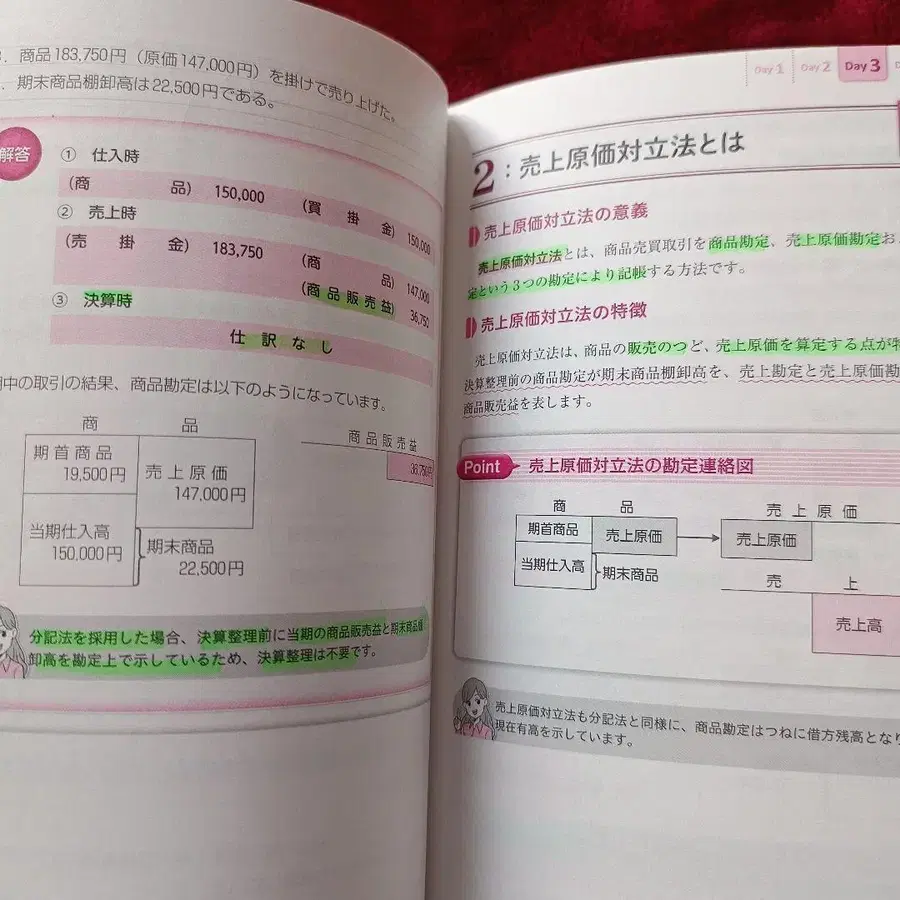 . 商品183,750円（原価147,000円）を掛けで売り上げた。
. 期末商品棚卸高は22,500円である。
解答
① 仕入時
（商 品） 150,000 （買 掛 金） 150,000
② 売上時
（売 掛 金） 183,750 （商 品） 147,000
（商品販売益） 36,750
③ 決算時
仕訳なし
中の取引の結果、商品勘定は以下のようになっています。
商 品
期首商品
19,500円
売上原価
147,000円
当期仕入高
150,000円
期末商品
22,500円
商品販売益
36,750円
分記法を採用した場合、決算整理前に当期の商品販売益と期末商品棚
卸高を勘定上で示しているため、決算整理は不要です。
Day 1 Day 2 Day 3
2：売上原価対立法とは
売上原価対立法の意義
売上原価対立法とは、商品売買取引を商品勘定、売上原価勘定お
定という3つの勘定により記帳する方法です。
売上原価対立法の特徴
売上原価対立法は、商品の販売のつど、売上原価を算定する点が
決算整理前の商品勘定が期末商品棚卸高を、売上勘定と売上原価勘
商品販売益を表します。
Point 売上原価対立法の勘定連絡図
商 品
期首商品
売上原価
当期仕入高
期末商品
売上原価
売上原価
売 上
売上高
売上原価対立法も分記法と同様に、商品勘定はつねに借方残高とな
現在有高を示しています。